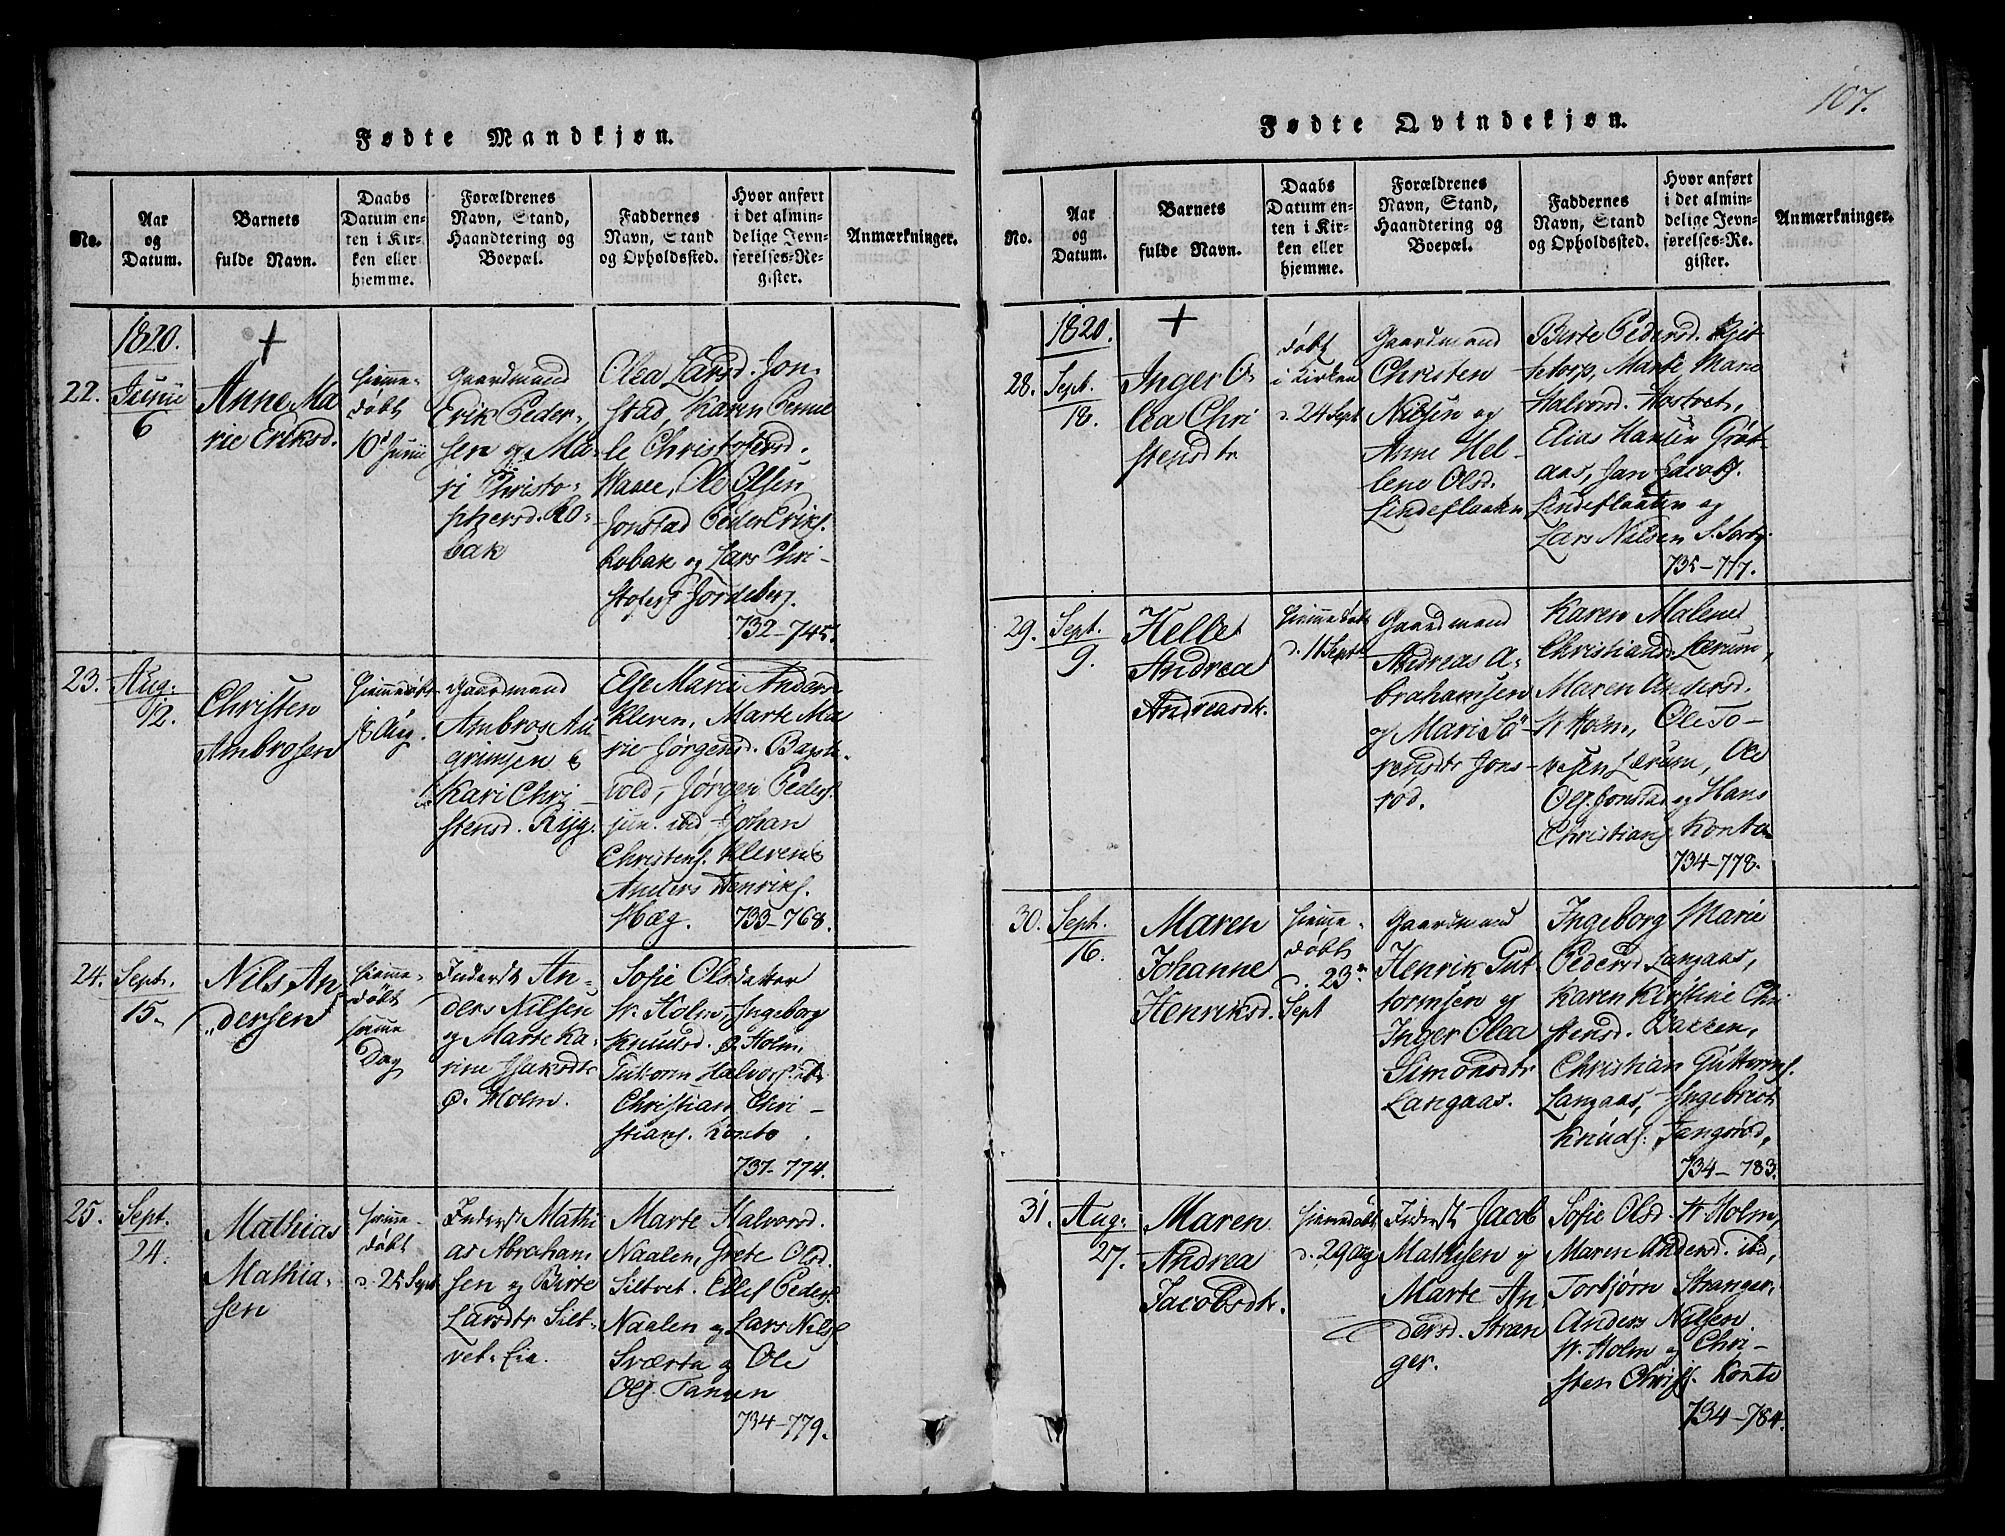 107.
Fødte Mandkjøn.
No.
Aar
og
Datum.
Barnets
fulde Navn.
Daabs
Datum en-
ten i Kir-
ken eller
hjemme.
Forældrenes
Navn, Stand,
Haandtering og
Boepæl.
Faddernes
Navn, Stand
og Opholdssted.
Hvor anført
i det almin-
delige Jevn-
førelses-Re-
gister.
Anmærkninger.
1820.
+
22.
Junii
6
Anne Ma
rie Eriksd.
Hiemme-
døbt
10d Junii
Gaardmand
Erik Peder-
sen og Ma-
ri Christo-
phersd. Ro-
bak
Olea Larsd. Jon-
stad, Karen Pernil
le Christofersd.
Ole Olsen
Jonstad Peder Eriks.
Robak og Lars Chri-
stofers. Jordeberg.
732-745.
23.
Aug:
12.
Christen
Ambrosen
Hiemmedøbt
18 Aug.
Gaardmand
Ambros An
grimsen &
Kari Chri-
stensd. Rijg.
Else Marie Anders
Kleven, Marte Ma
rie Jørgensd.
vold, Jørgen Peders.
ibd, Johan
Christens. Kleven &
Anders Henriks.
Hæg.
733-768.
24.
Sept.
15.
Nils An
dersen
Hiemme-
døbt
samme
Dag
Inderst An-
ders Nilsen
og Marte Ka-
rine Isaksdtr
Ø. Holm.
Sofie Olsdatter
W. Holm, Ingeborg
Knudsd. Ø. Holm,
Guttorm Halvors.
Christian Chri-
stians. Konto
737-774.
25.
Sept.
24.
Mathias
Mathia-
sen
Hiemme-
døbt
d. 25 Sept
Inderst Mathi
as Abraham
sen og Birte
Larsdtr Silt-
vet-Eie.
Marte Halvorsd.
Naalen, Grete Olsd.
Siltvet. Ellef Peders.
Naalen og Lars Nils.
Sværta og Ole
Ols. Tangen
734-779.
Fødte Qvindekjøn.
No.
Aar
og
Datum.
Barnets
fulde Navn.
Daabs
Datum en-
ten i Kir-
ken eller
hjemme.
Forældrenes
Navn, Stand,
Haandtering og
Boepæl.
Faddernes
Navn, Stand
og Opholdssted.
Hvor anført
i det almin-
delige Jevn-
førelses-Re-
gister.
Anmærkninger.
1820.
+
28.
Sept.
18.
Inger O-
lea Chri
stensdtr
døbt
i Kirken
d. 24 Sept
Gaardmand
Christen
Nilsen og
Anne Hel-
lene Olsd.
Lindeflaaten
Birte Pedersd.
Marte Marie
Halvorsd. Hostvet,
Elias Hansen Gröt
aas, Jan Jacobs.
Lindeflaaten og
Lars Nilsen S.
735-777.
29.
Sept.
9.
Helle
Andrea
Andreasdtr.
Hiemmedøbt
d. 11 Sept
Gaardmand
Andreas A-
brahamsen
og Mari Sö
rensdtr Jons-
rod.
Karen Malene
Christiansd. Lærum,
Maren Andersd.
W Holm, Ole To-
resen Lærum, Ole
Ols. Jonstad og Hans
Christians. Konto
734-778.
30.
Sept.
16.
Maren
Johanne
Henriksd.
Hiemme-
døbt
d. 23n
Sept
Gaardmand
Henrik Gut
tormsen og
Inger Olea
Simonsdtr
Langaas.
Ingeborg Marie
Pedersd Langaas,
Karen Kirstine Chri
stensd. Bakken,
Christian Guttorms.
Langaas, Ingebret
Knuds. Tangröd,
734-783.
31.
Aug:
27.
Maren
Andrea
Jacobsdtr.
Hiemmedøbt
d. 29 Aug
Inderst Jacob
Mathisen og
Marte An-
dersd. Stran
ger.
Sofie Olsd. W Holm,
Maren Andersd. ibd,
Torbjörn Stranger,
Anders Nilsen
W. Holm og Chri-
sten Chris. Konto
734-784.